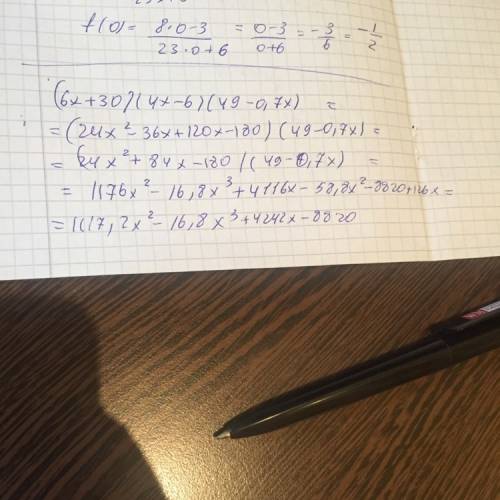 f(0) = (8·0-3)/(23·0+6) = (0-3)/(0+6) = -3/6 = -1/2
(6x+30)(4x-6)(49-0,7x) =
= (24x²-36x+120x-180)(49-0,7x) =
= (24x²+84x-180)(49-0,7x) =
= 1176x²-16,8x³+4116x-58,8x²-8820+126x =
= 1117,2x²-16,8x³+4242x-8820